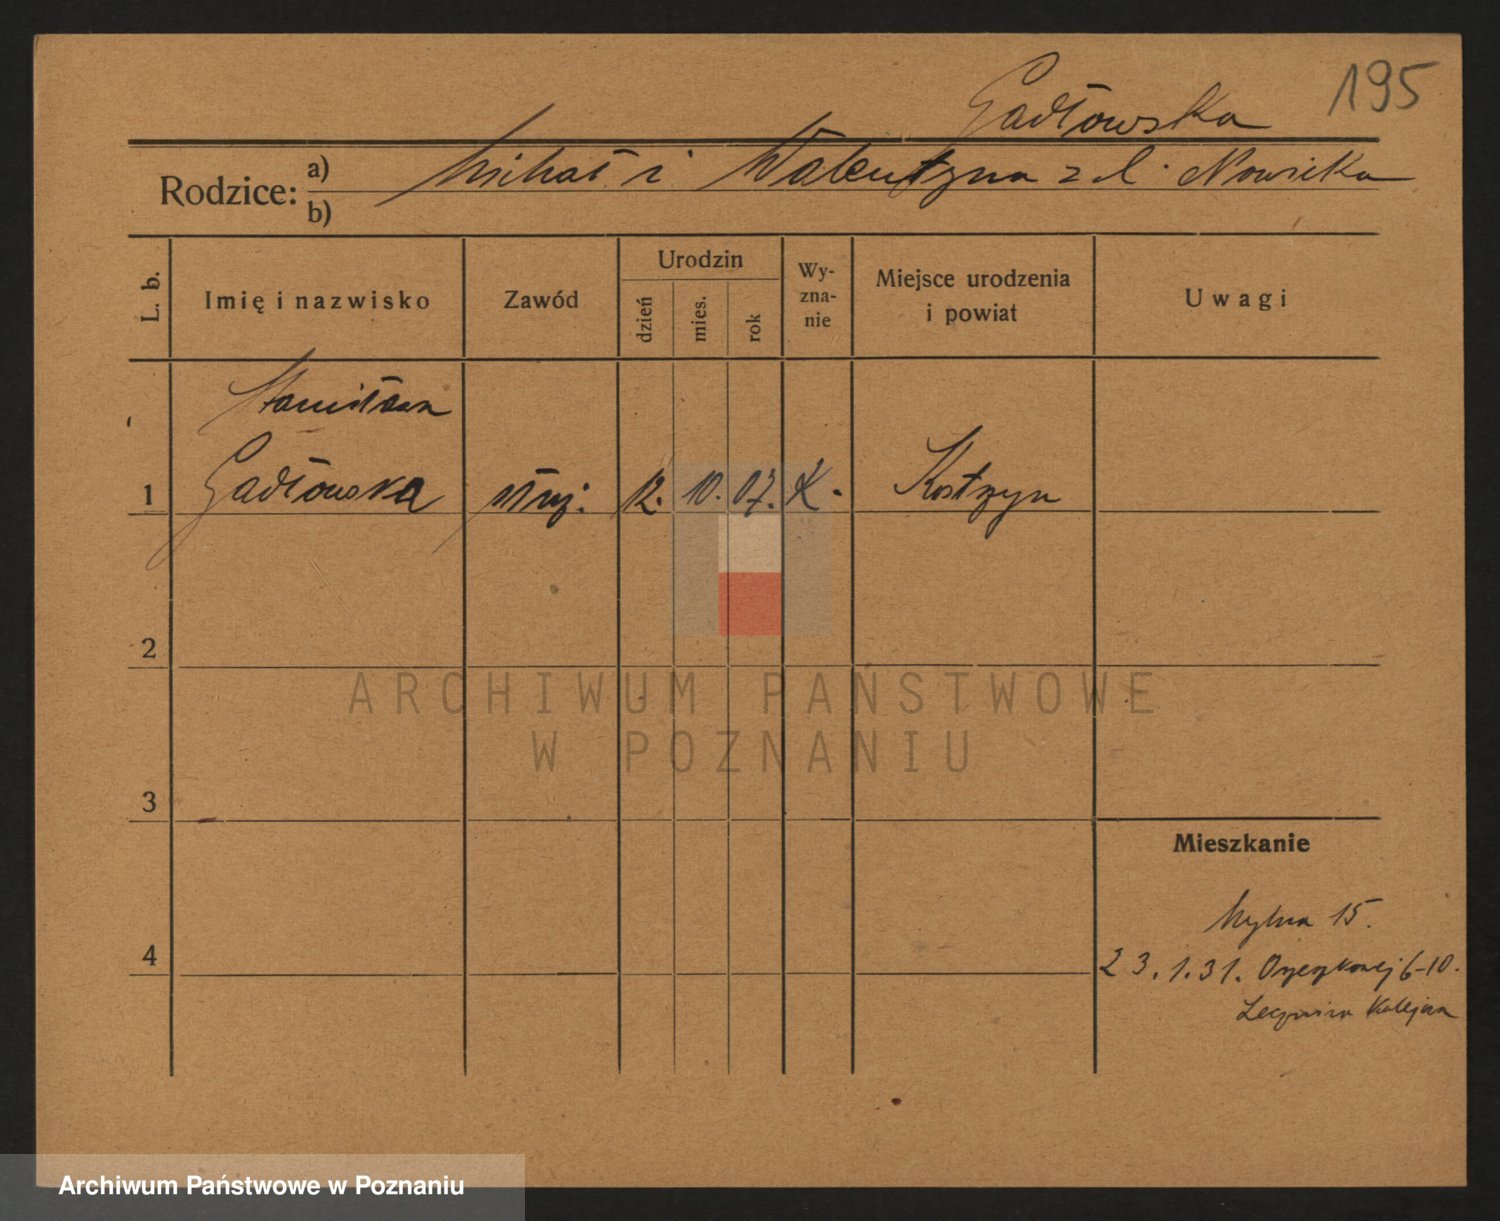 195
Gadłowska
Rodzice: a) Michał i Walentyna z d. Nowicka
b)
L. b.
Imię i nazwisko
Zawód
Urodzin
dzień
mies.
rok
Wy-
zna-
nie
Miejsce urodzenia
i powiat
Uwagi
Stanisława
1 Gadłowska służ. 12. 10. 07. K. Kostrzyn
2
3
4
Mieszkanie
Mylna 15.
23.1.31. 6-10.
Lecznica Kolejowa
ARCHIWUM PANSTWOWE
W POZNANIU
Archiwum Państwowe w Poznaniu